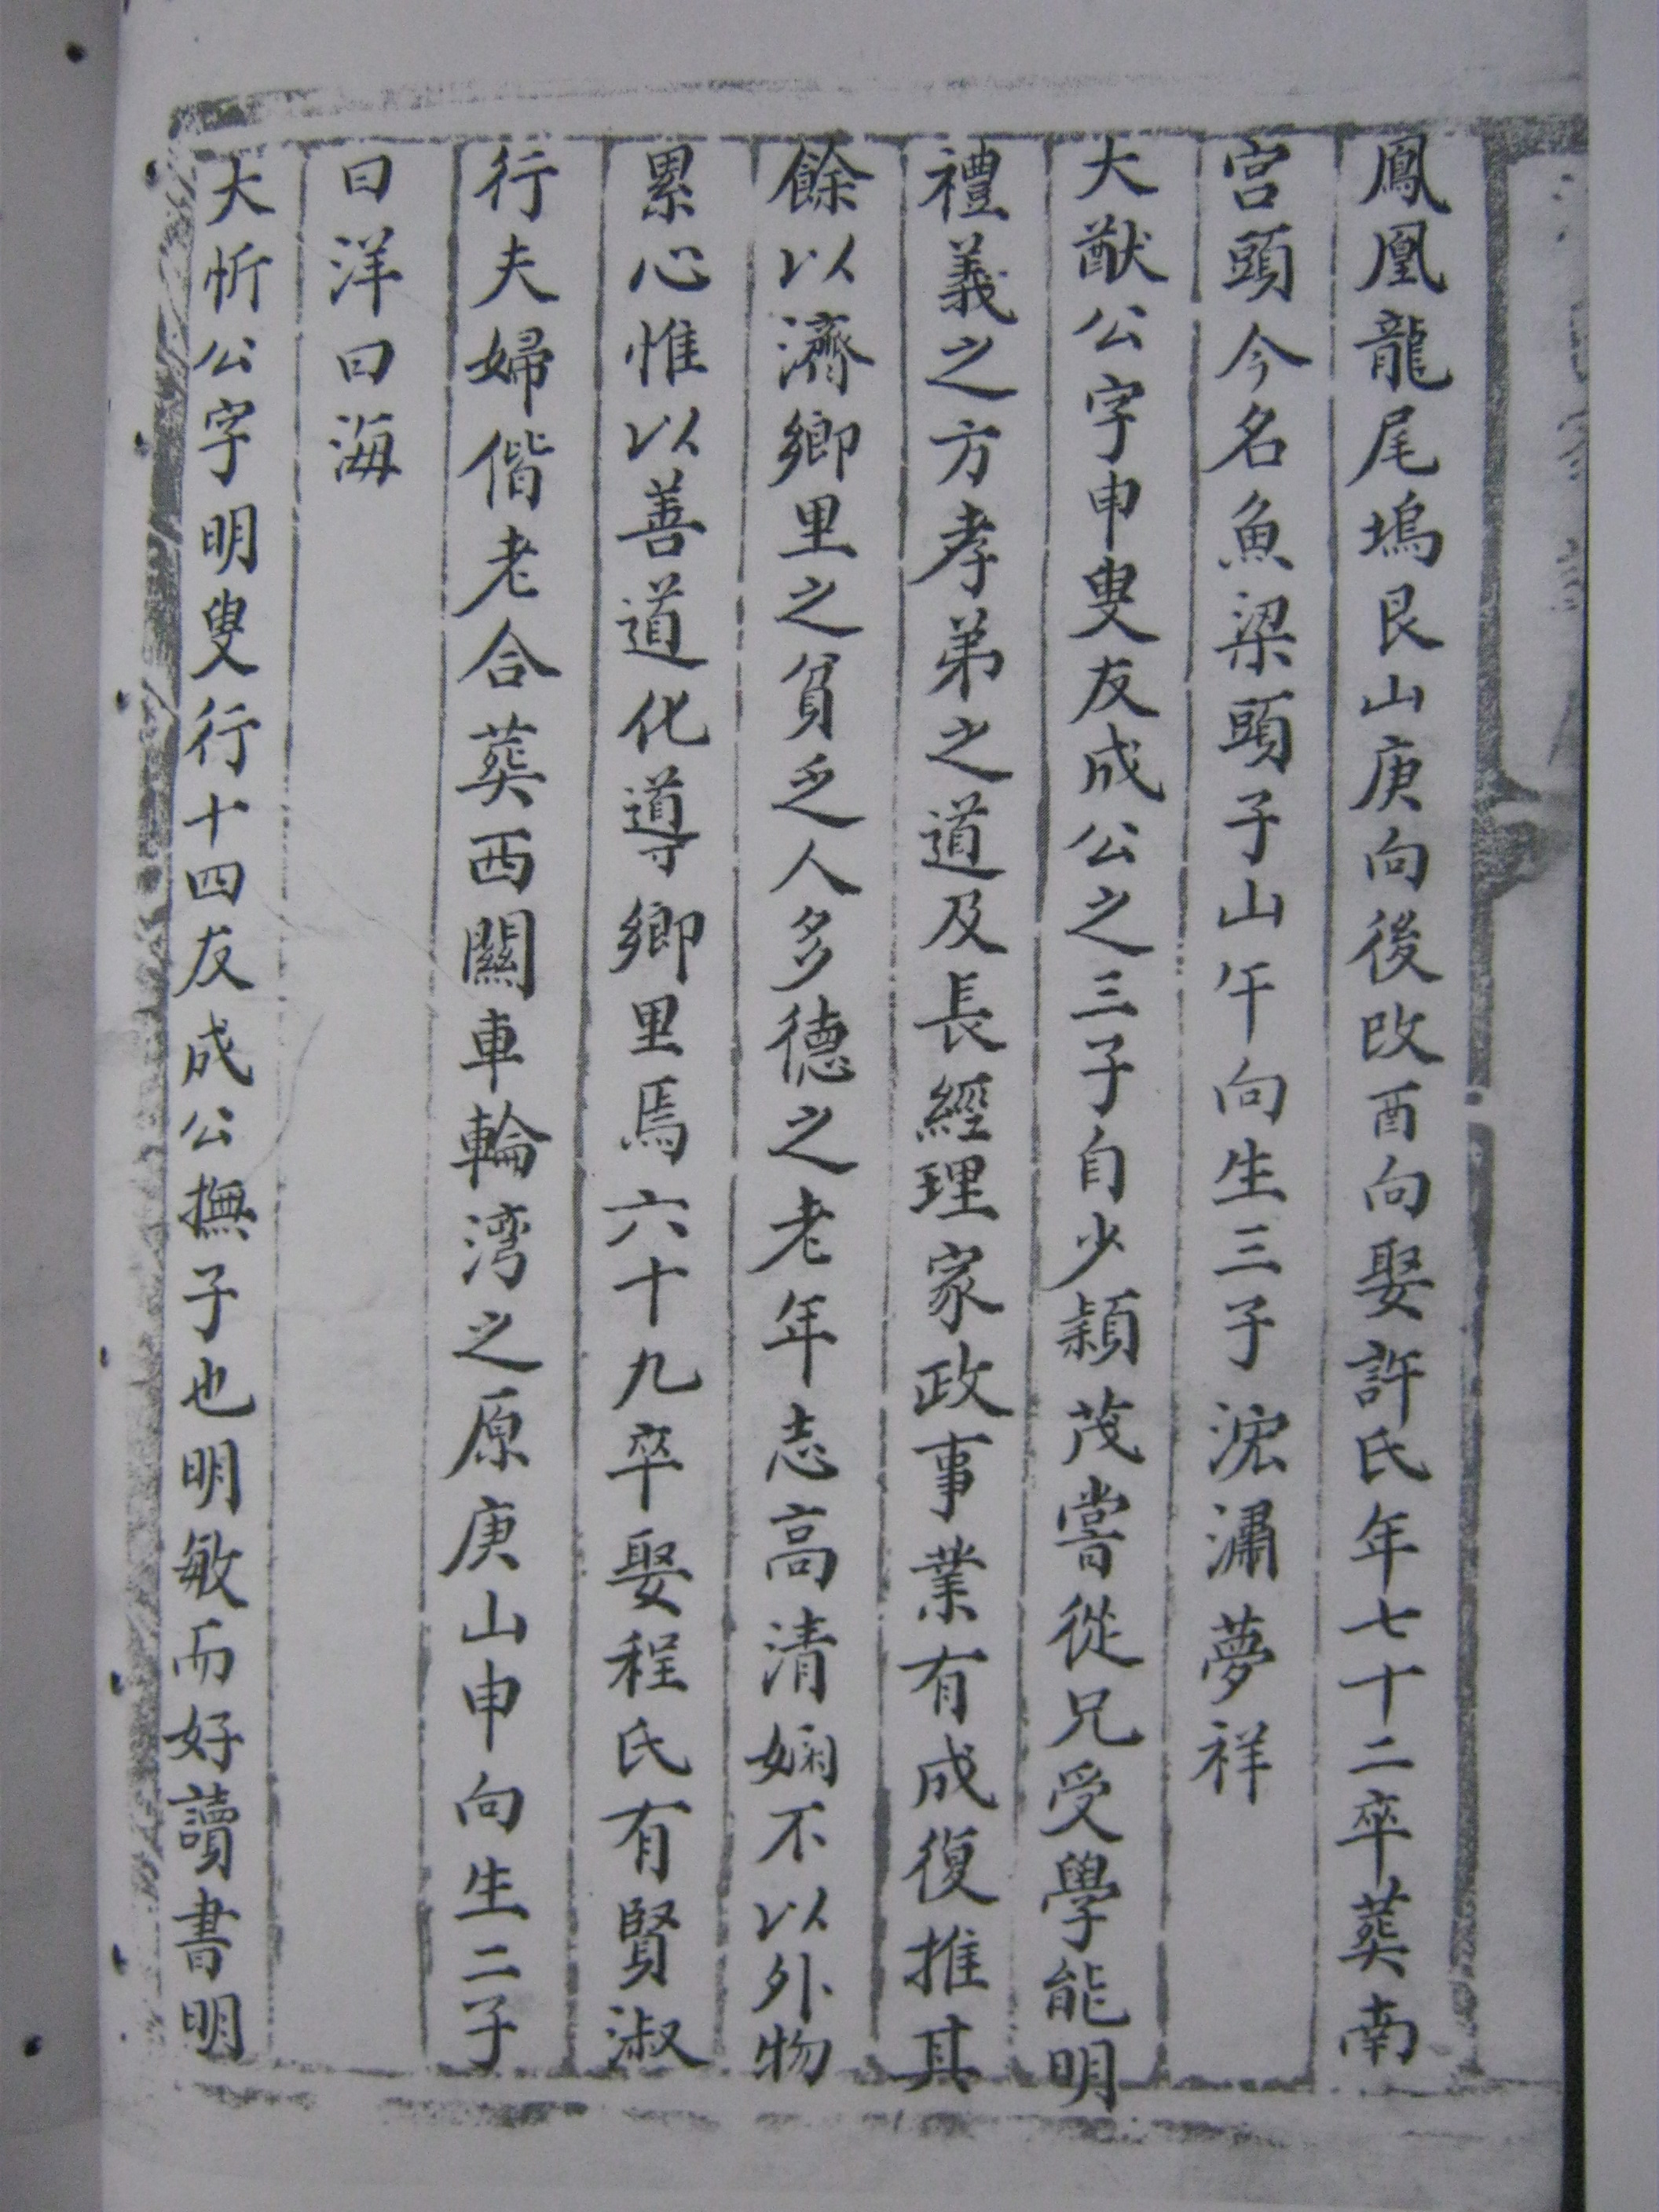 鳳凰龍尾塢艮山庚向後改酉向娶許氏年七十二卒葬南
宫頭今名魚梁頭子山午向生三子浤潚夢祥
大猷公字申叟友成公之三子自少穎茂嘗從兄受學能明
禮義之方孝弟之道及長經理家政事業有成復推其
餘以濟鄉里之貧乏人多德之老年志高清嫻不以外物
累心惟以善道化導鄉里焉六十九卒娶程氏有賢淑
行夫婦偕老合葬西關車輪湾之原庚山申向生二子
曰洋曰海
大忻公字明叟行十四友成公撫子也明敏而好讀書明